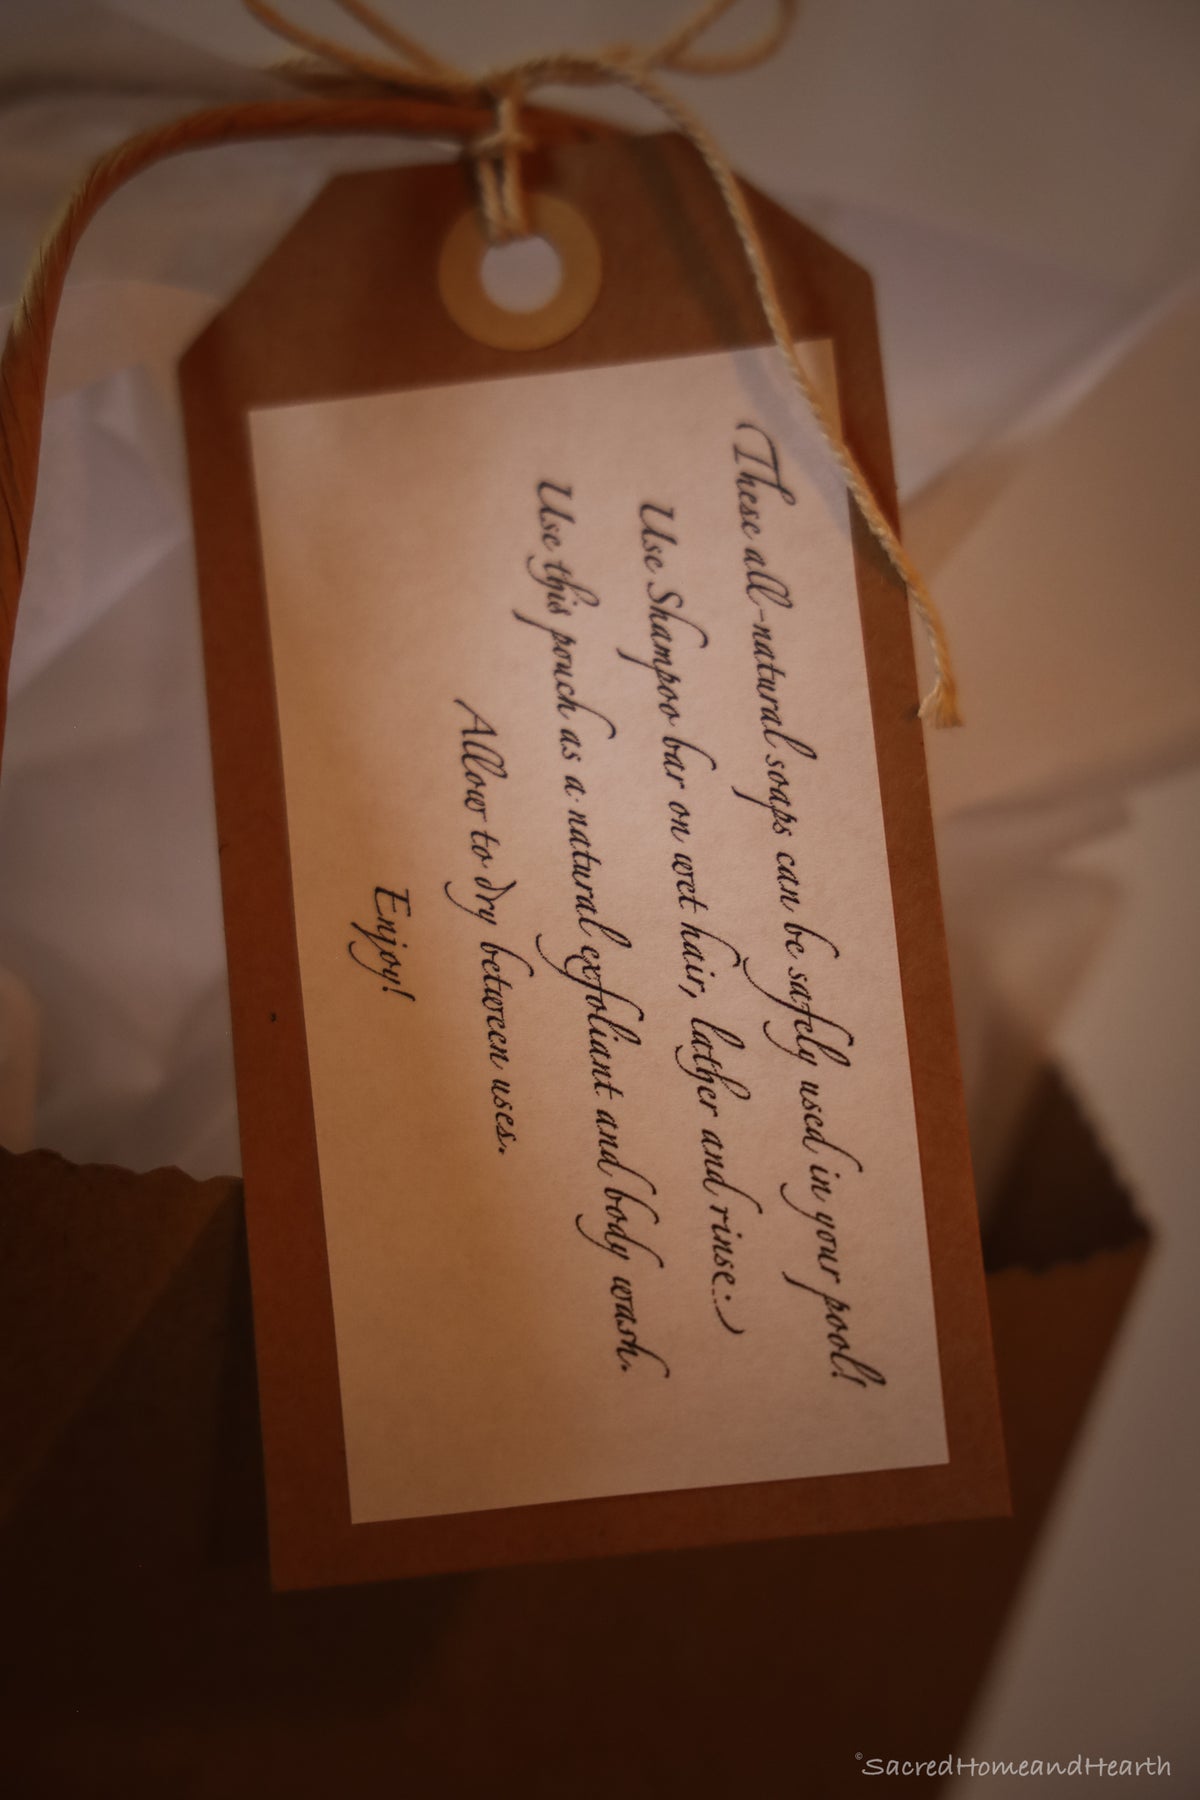 These all-natural soaps can be safely used in your pool!
Use Shampoo bar on wet hair, lather and rinse.
Use this pouch as a natural exfoliant and body wash.
Allow to dry between uses.
Enjoy!
©SacredHomeandHearth